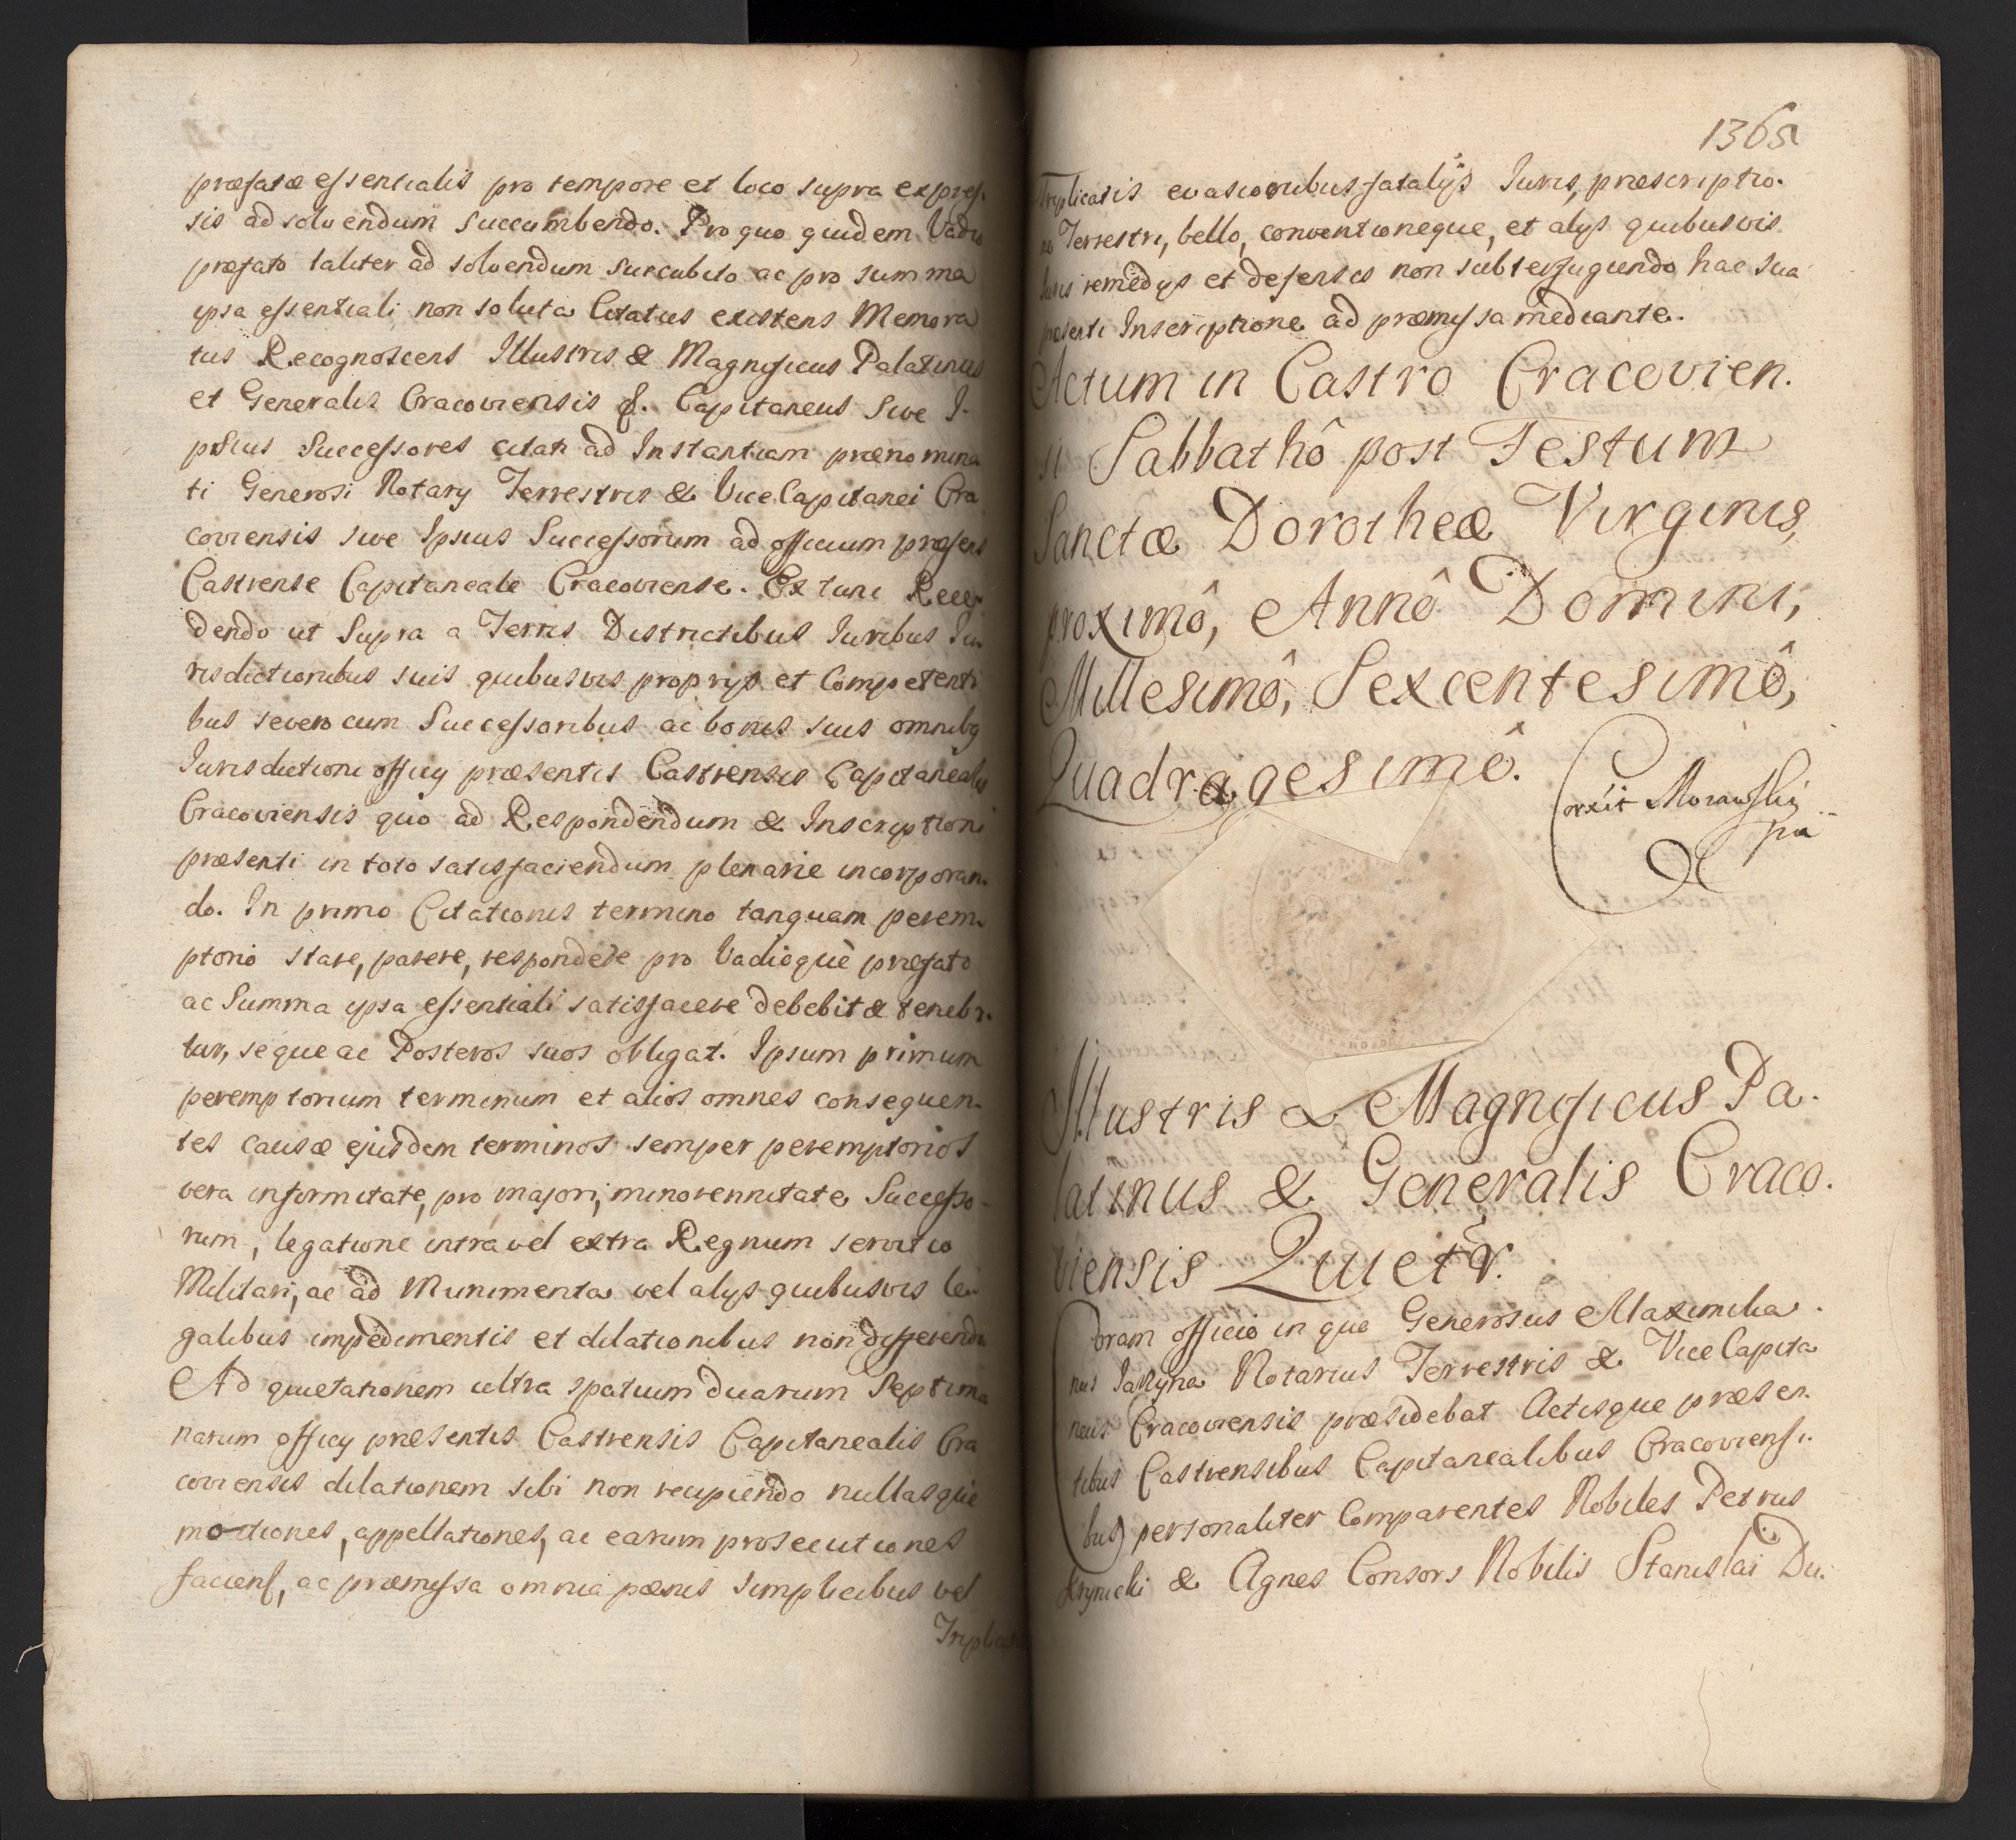 præfatæ essentialis pro tempore et loco supra expres-
sis ad solvendum succumbendo. Pro quo quidem Vadio
præfato taliter ad solvendum succubito ac pro summa
ipsa essentiali non soluta Citatus existens Memora
tus Recognoscens Illustris & Magnificus Palatinus
et Generalis Cracoviensis &. Capitaneus Sive I-
psius Successores citati ad Instantiam prænomina
ti Generosi Notarÿ Terrestris & ViceCapitanei Cra
coviensis sive Ipsius Successorum ad officium præsens
Castrense Capitaneale Cracoviense. Ex tunc Rece-
dendo ut Supra a Terris Districtibus Iuribus Iu
risdictionibus suis quibusvis proprijs et Competenti
bus seve cum Successoribus ac bonis suis omnibq
Iurisdictioni officÿ præsentis Castrensis Capitanealis
Cracoviensis quo ad Respondendum & Inscriptioni
præsenti in toto satisfaciendum plenarie incorporan-
do. In primo Citationis termino tanquam perem-
ptorio stare, parere, respondere pro Vadioquè præfato
ac Summa ipsa essentiali satisfacere debebit & tenebi-
tur, seque ac Posteros suos obligat. Ipsum primum
peremptorium terminum et alios omnes consequen-
tes causæ ejusdem terminos semper peremptorios
vera infirmitate, pro majori, minorennitate Successo-
rum, legatione intra vel extra Regnum servitio
Militari, ac ad Munimenta vel alijs quibusvis le-
galibus impedimentis et dilationibus non differendo
Ad quietationem ultra spatium duarum Septima
narum officÿ præsentis Castrensis Capitanealis Cra
coviensis dilationem sibi non recipiendo nullasque
motiones, appellationes, ac earum prosecutiones
faciens, ac præmissa omnia pænis simplicibus vel
Triplicatis
1365
Triplicatis evasionibus fatalijs Iuris, præscriptio-
ne Terrestri, bello, conventioneque, et alijs quibusvis
Iuris remedijs et defensis non subterfugiendo hac sua
præsenti Inscriptione ad præmissa mediante.
Actum in Castro Cracovien.
si Sabbathô post Festum
Sanctæ Dorotheæ Virginis,
proximô, Annô Domini,
Millesimô, Sexcentesimô,
Quadragesimô.
Corexit Morawskij
Illustris & Magnificus Pa-
latinus & Generalis Craco-
viensis Quietr.
Coram officio in quo Generosus Maximilia-
nus Jaklyna Notarius Terrestris & ViceCapita
neus Cracoviensis præsidebat Actisque præsen-
tibus Castrensibus Capitanealibus Cracoviensi-
bus) personaliter Comparentes Nobiles Petrus
Krynicki & Agnes Consors Nobilis Stanislai Du-